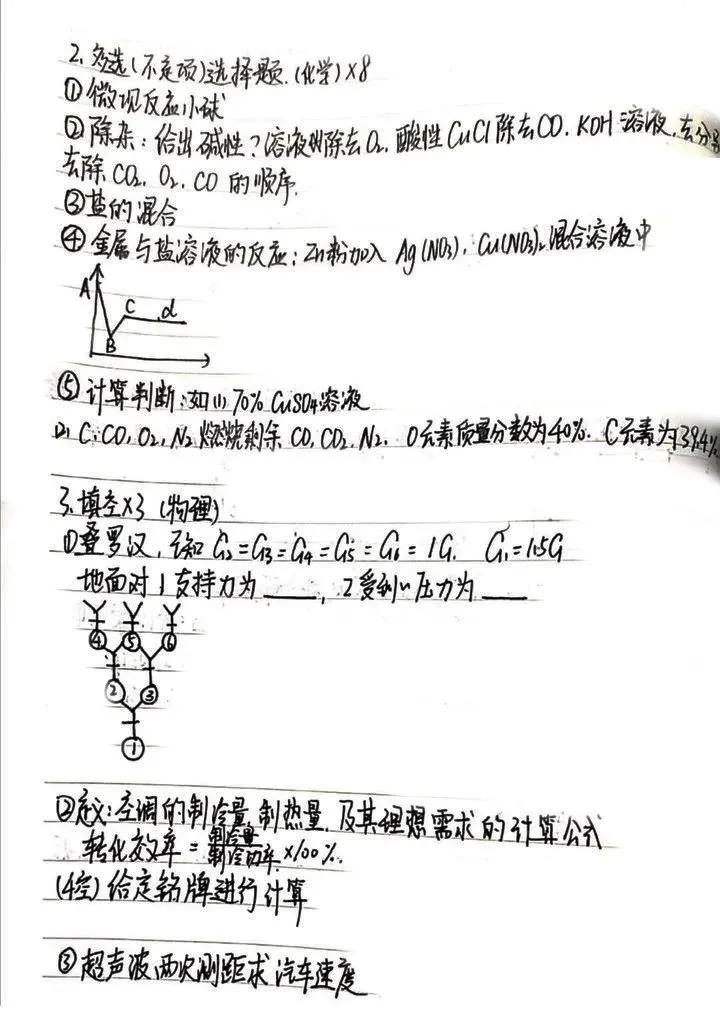 2. 多选(不定项)选择题.(化学)×8
① 微观反应小球
② 除杂:给出碱性?溶液除去O₂,酸性CuCl除去CO.KOH溶液,去分
去除CO₂,O₂,CO的顺序.
③ 盐的混合
④ 金属与盐溶液的反应:Zn粉加入Ag(NO₃),Cu(NO₃)₂混合溶液中
A
C
d
B
⑤ 计算判断:如(1)70% CuSO₄溶液
(2) C:CO,O₂,N₂燃烧剩余CO,CO₂,N₂. O元素质量分数为40%. C元素为39.4%
3. 填空×3 (物理)
① 叠罗汉,已知G₂=G₃=G₄=G₅=G₆=1G. G₁=1.5G
地面对1支持力为____,2受到的压力为____
④ ⑤ ⑥
② ③
①
② 定义:空调的制冷量,制热量,及其理想需求的计算公式
转化效率=制冷量/制冷功率×100%.
(4空)给定铭牌进行计算
③ 超声波两次测距求汽车速度